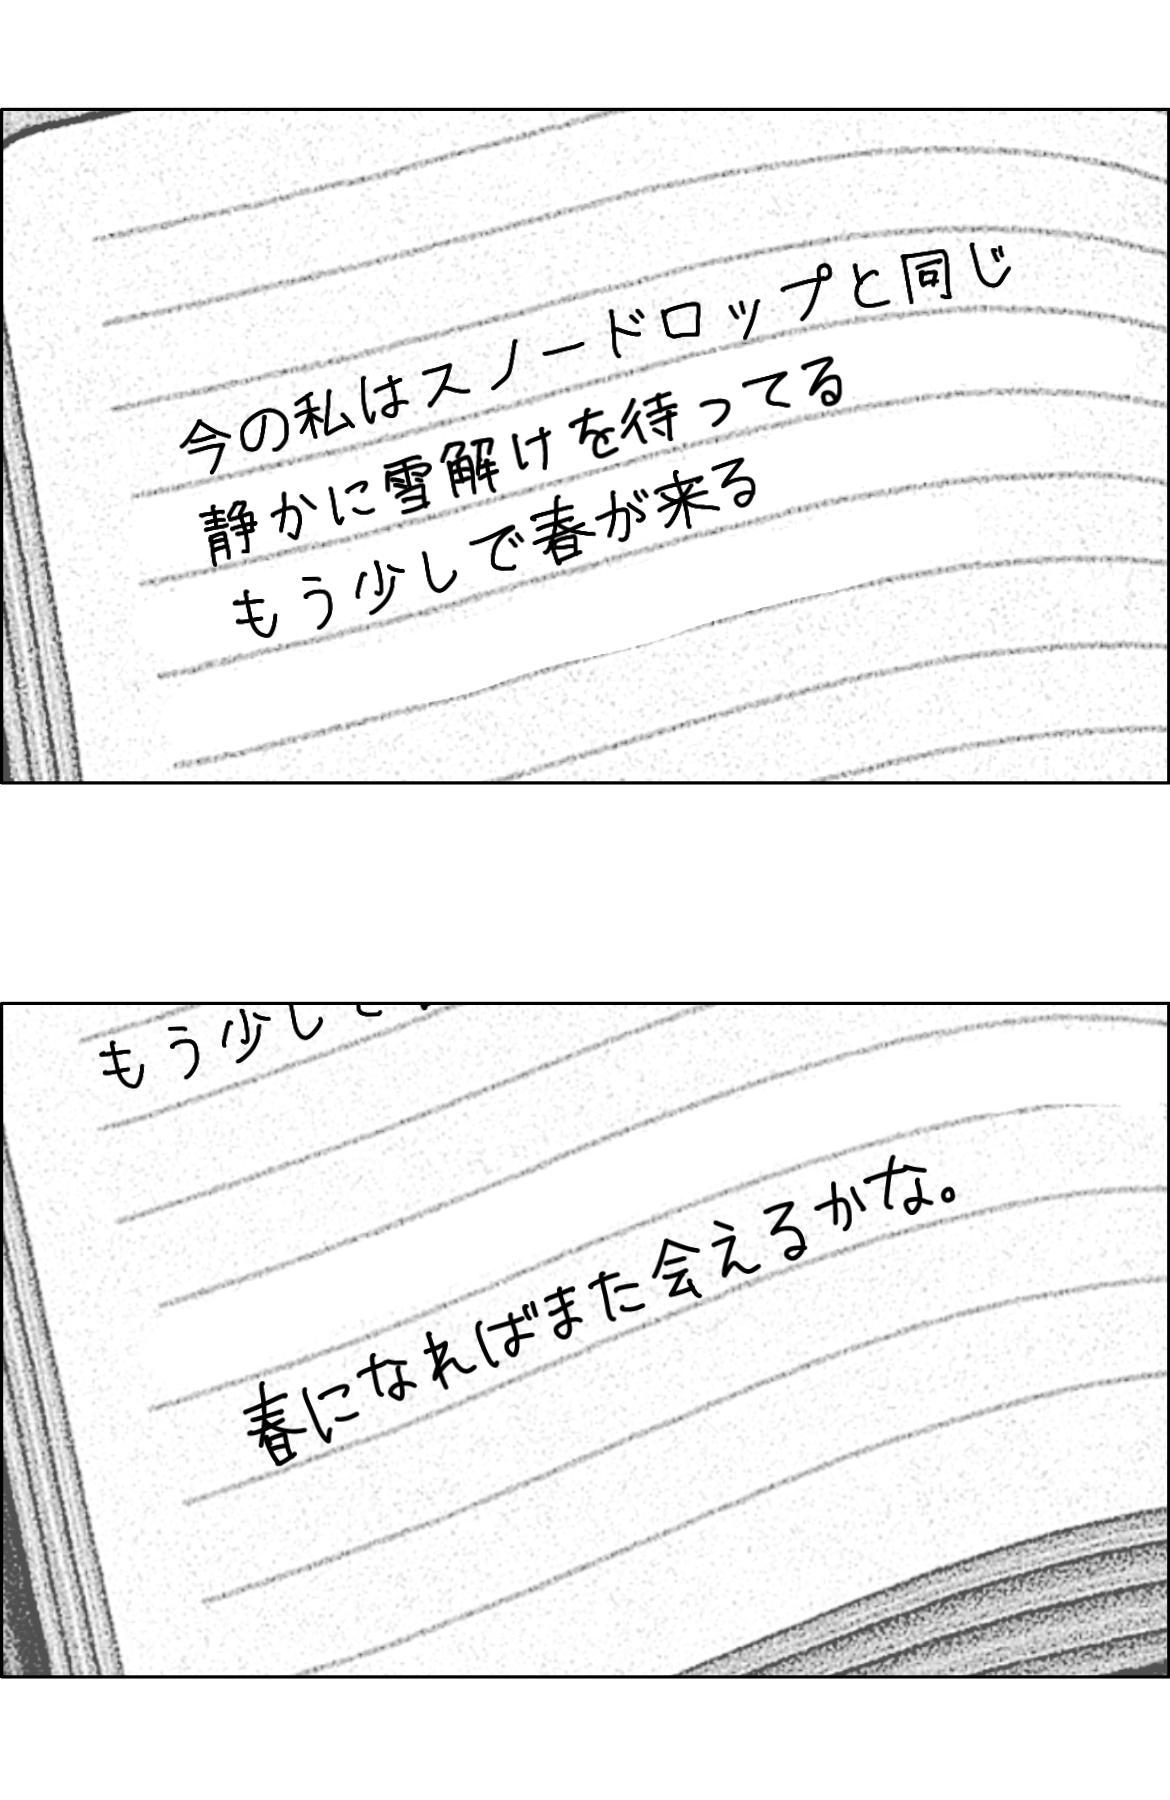 今の私はスノードロップと同じ
静かに雪解けを待ってる
もう少しで春が来る
もう少しで
春になればまた会えるかな。